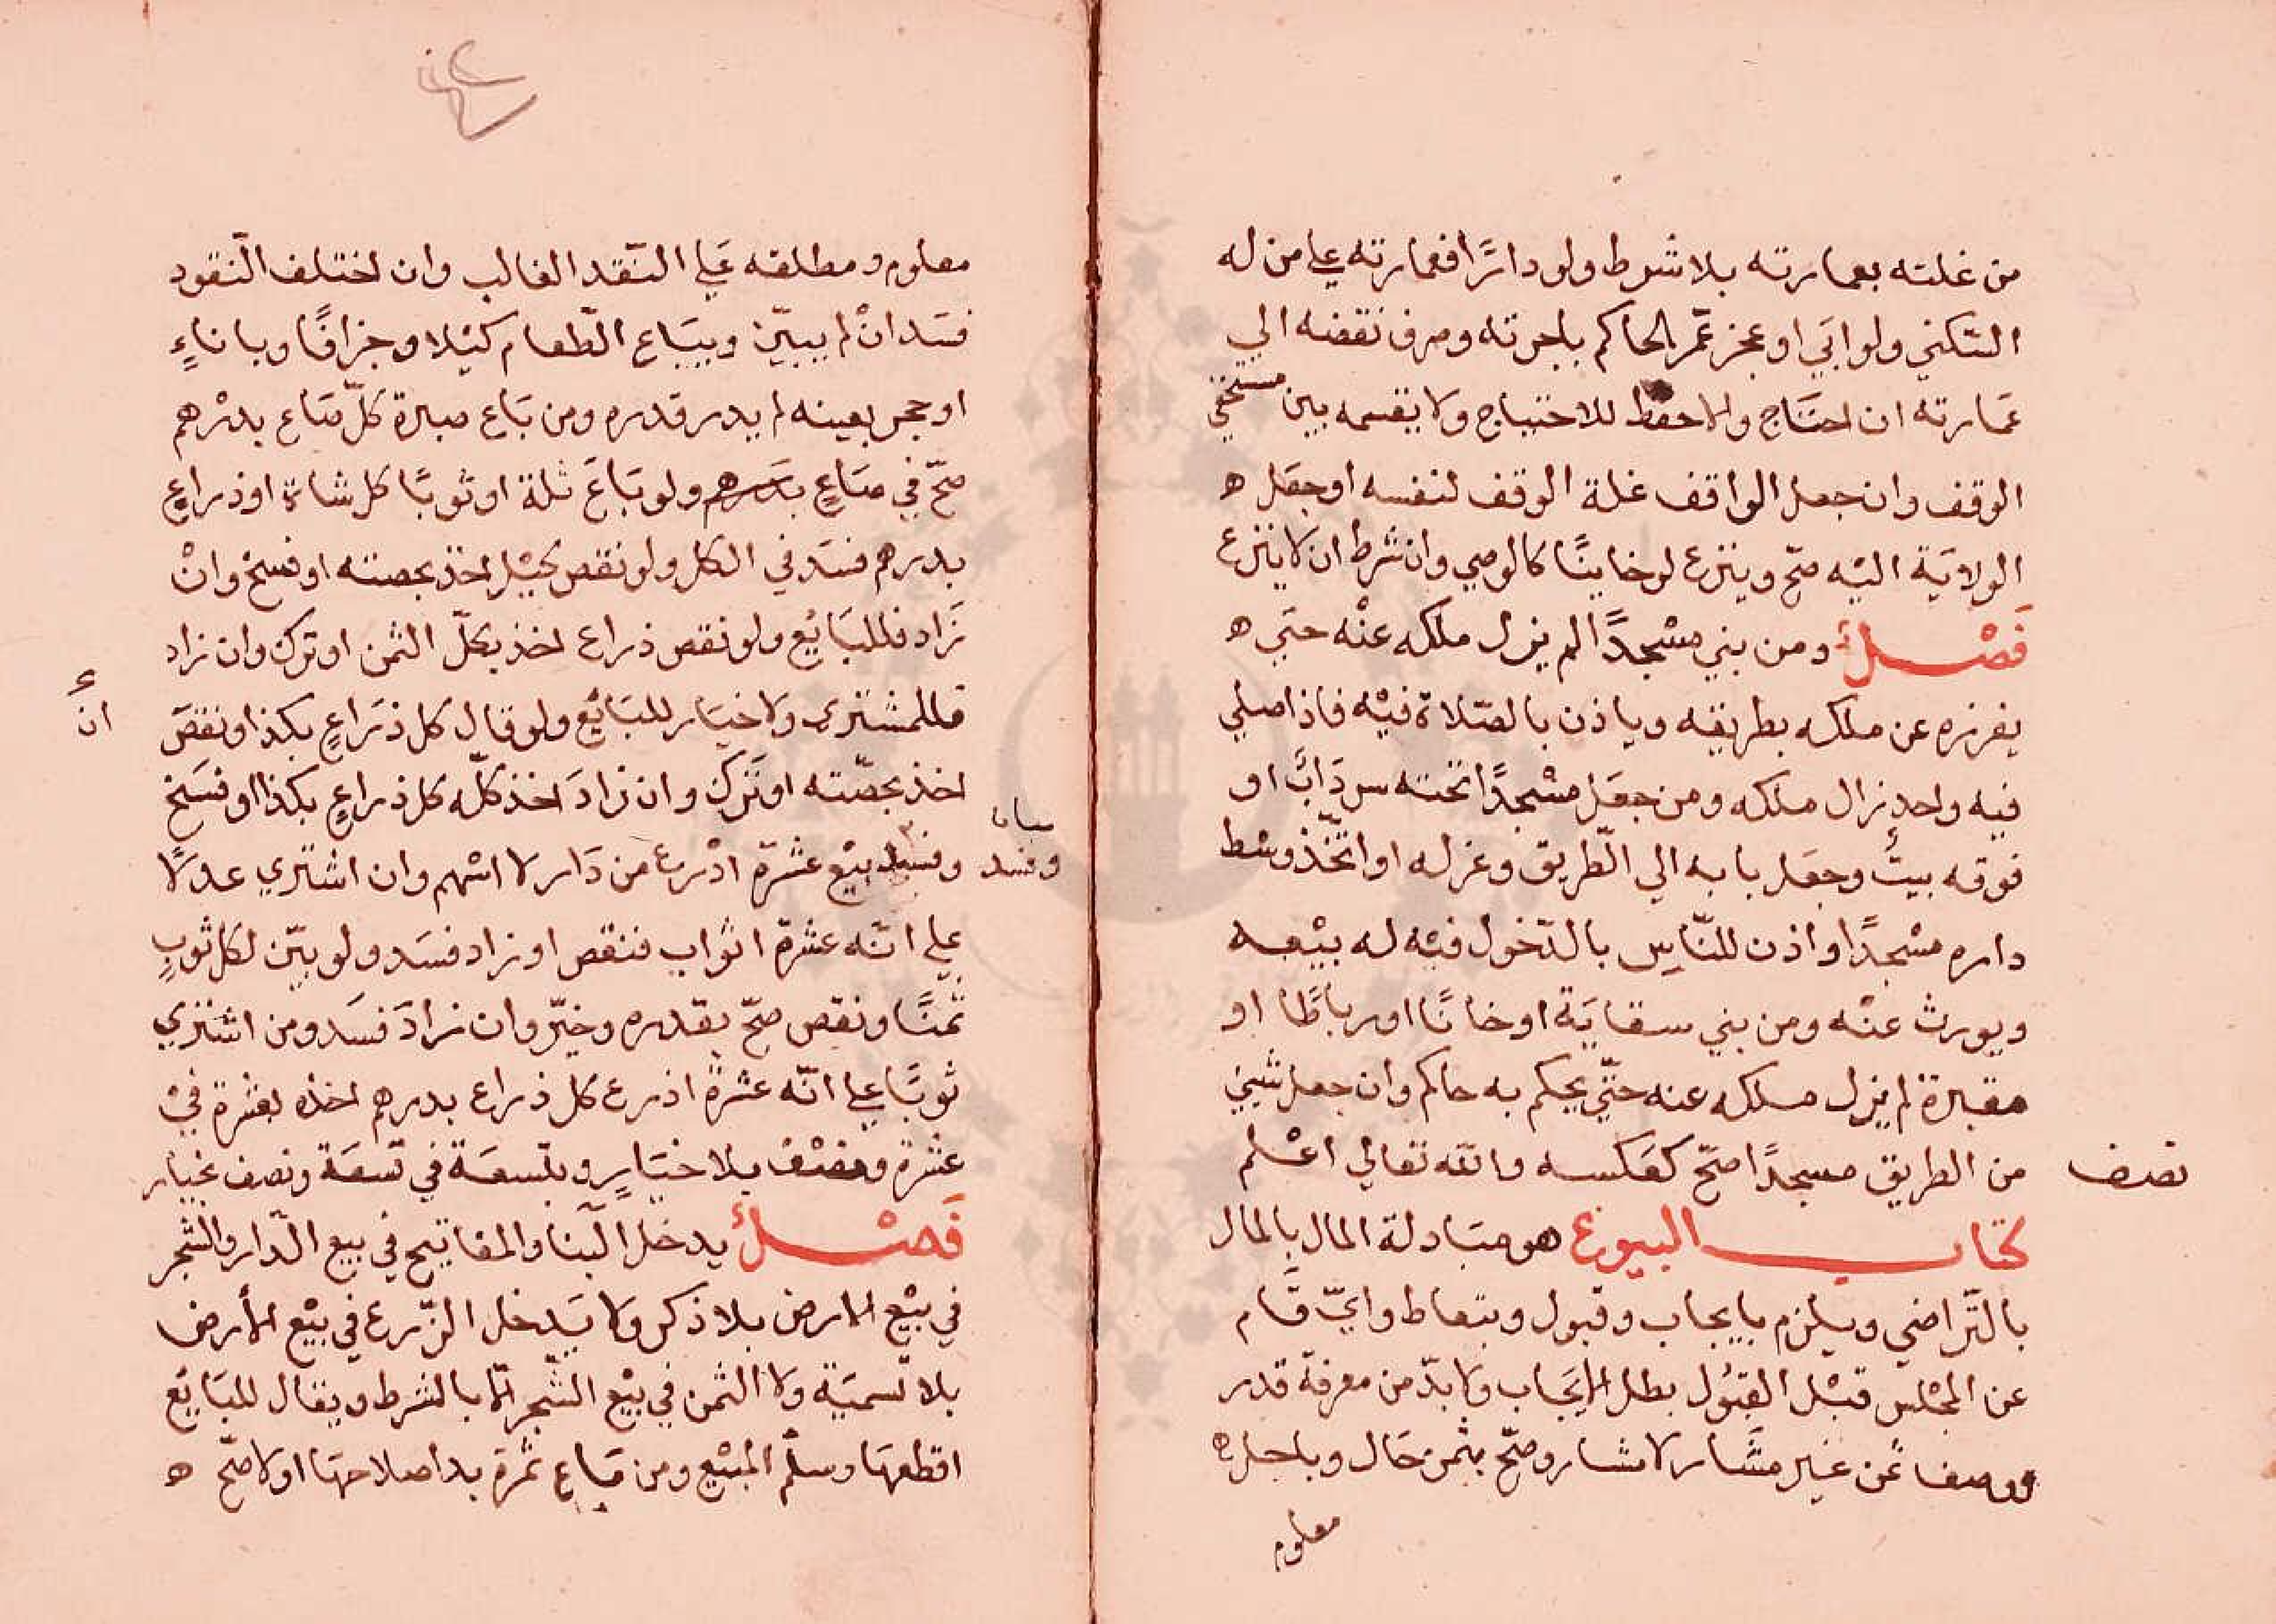 من غلته بعمارته بلا شرط ولو دارًا فعمارته علي من له
السّكني ولو ابَي او عجز عمّر الحاكم باجرته وصرف نقضه الي
عمَارته ان احتَاج والا حفظ للاحتياج ولا يقسمه بين مستحقي
الوقف وان جعل الواقف غلة الوقف لنفسه او جعَل ه
الولايَة اليْه صحّ وينزع لو خاينًا كالوصي وان شرط ان لا ينزع
فَصْـــلٌ ومن بني مسْجدًا لم يزل ملكه عنْه حتَي ه
يفرزه عن ملكه بطريقه وياذن بالصّلاة فيْه فاذا صلي
فيه واحد زال ملكه ومن جعَل مسْجدًا تحته سردَابٌ او
فوقه بيتٌ وجعَل بابه الي الطّريق وعزله او اتخّذ وسْط
داره مسْجدًا واذن للنّاسِ بالدّخول فيْه له بيْعه
ويورث عنْه ومن بني سقايَة او خانًا او رباطًا او
مقبرة لم يزل ملكه عنه حتّي يحكم به حاكم وان جعل شيئ
من الطريق مسجدًا صحّ كعَكسه والله تعالي اعْلم
نصف
كتاب البيوع هو مبَادلة المال بالمال
بالتّراضي ويلزم بايجاب وقبول وبتعاط وايّ قَام
عن المجْلس قبْل القبُول بطل الايجَاب ولا بدّ من معرفة قدر
ووصف ثمن غير مشَار لا مشار وصحّ بثمن حَال وباجل ه
معلوم
معلوم ومطلقه عَلي النّقد الغالب وان اختلف النّقود
فسَد انْ لم يبيّن ويبَاع الطّعام كيْلا وجزافًا وباناءٍ
او حجر بعينه لم يدر قدره ومن بَاع صبرة كلّ صَاع بدرْهم
صحّ في صَاعٍ بدرهم ولو بَاعَ ثلة او ثوبًا كل شاة او ذراعٍ
بدرهم فسَد في الكل ولو نقص كيْل اخذ بحصته او فسخ وانْ
زَاد فللبَائع ولو نقص ذراع اخذ بكلّ الثمن او ترك وان زاد
فللمشتري ولا خيَار للبَائع ولو قال كل ذرَاعٍ بكذا ونقصَ
انَ
اخذ بحصّته او تَرك وان زادَ اخذ كلّه كل ذراعٍ بكذا او فسَخ
وفسد
وفسد بيْع عشَرة اذْرع من دَار لا اسْهم وان اشتري عدلًا
علي انّه عشرة اثواب فنقص او زاد فسَد ولو بيّن لكل ثوبٍ
ثمنًا ونقص صحّ بقدره وخيّر وان زادَ فسَد ومن اشتري
ثوبًا علي انّه عشرة اذرع كل ذراع بدرهم اخذه بعشرة فيْ
عشرة ونصْف بلا خيَارٍ وبتسعَة في تسعَة ونصف بخيار
فَصْـــلٌ يدخل البنا والمفاتيح في بيع الدّار والشجر
في بيْع الارض بلا ذكر ولا يَدخل الزّرع في بيْع الأرض
بلا تسميَة ولا الثمن في بيْع الشّجر الّا بالشرط ويقال للبَايَع
اقطعهَا وسلّم المبيْع ومن بَاع ثمرَة بدا صلاحهَا او لا صحّ ه